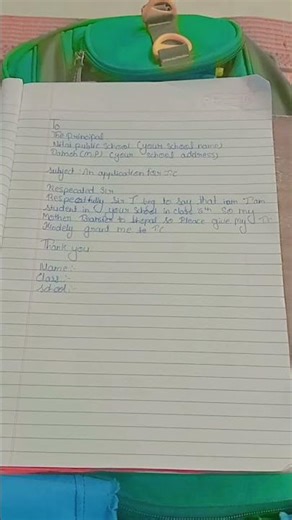 To
The Principal
Nalai public School (your school name)
Damoh (M.P) (your school address)
Subject : An application for TC
Respected Sir
Respectfully Sir I beg to say that iam I am
student in your school in class 8th So my
Mother Transfer to bhopal so Please give my TC
Kindely grant me to TC
Thank you
Name :-
Class :-
School :-